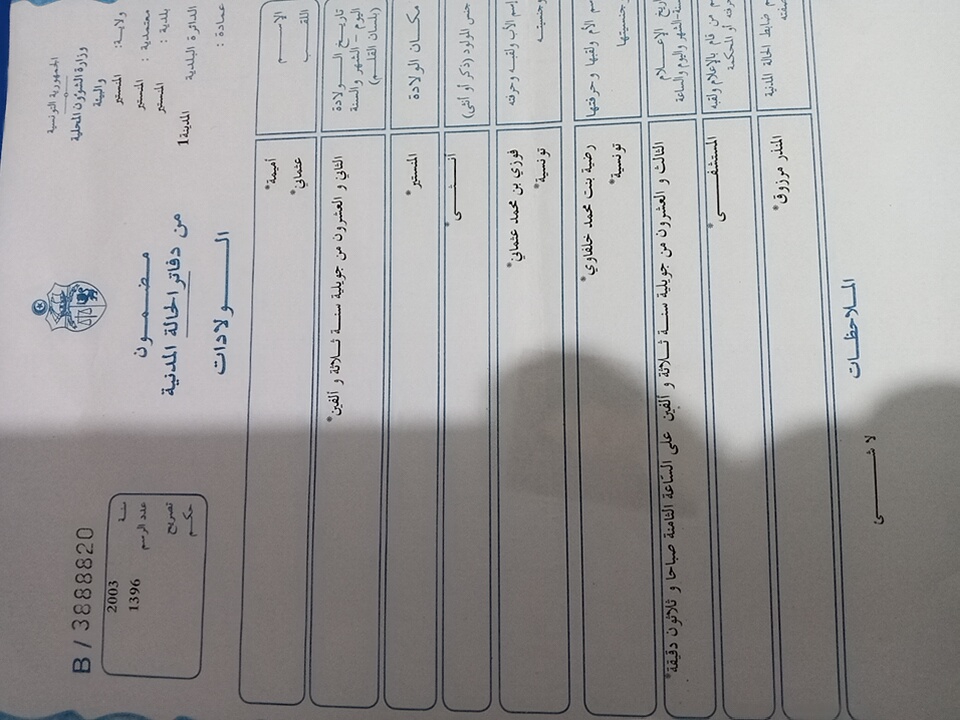 الجمهورية التونسية
وزارة الشؤون المحلية
والبيئة
ولاية: المنستير
معتمدية : المنستير
بلدية : المنستير
الدائرة البلدية المدينة1
عمادة :
مضمون
من دفاتر الحالة المدنية
الولادات
B / 3888820
سنة 2003
عدد الرسم 1396
تصريح
حكم
الاسم أميمة*
اللقب عثماني*
تاريخ الولادة
اليوم - الشهر والسنة
(بلسان القلم)
الثاني و العشرون من جويلية سنة ثلاثة و الفين*
مكان الولادة المنستير*
جنس المولود (ذكر أو أنثى) أنثى*
إسم الأب ولقبه وحرفته فوزي بن محمد عثماني*
وجنسيته تونسية*
سم الأم ولقبها وحرفتها رضية بنت محمد خلفاوي*
جنسيتها تونسية*
ريخ الإعلام
سنة-الشهر واليوم والساعة
الثالث و العشرون من جويلية سنة ثلاثة و الفين على الساعة الثامنة صباحا و ثلاثون دقيقة*
م من قام بالإعلام ولقبه
رفته أو المحكمة
المستشفى*
م ضابط الحالة المدنية
المنذر مرزوق*
الملاحظات
لا شئ